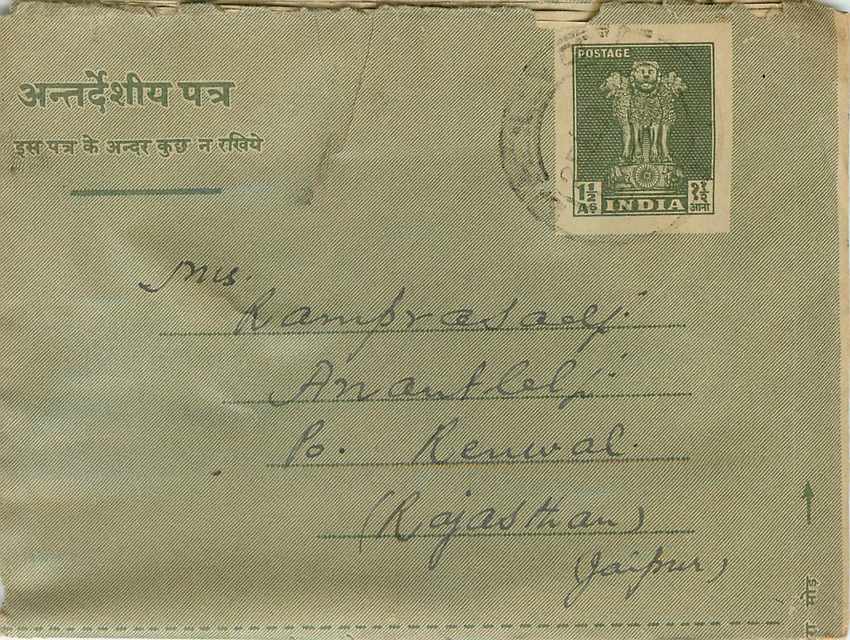 अन्तर्देशीय पत्र
इस पत्र के अन्दर कुछ न रखिये
POSTAGE
1½ As
INDIA
१½ आना
M/s.
Ramprasadji
Anantlalji
Po. Renwal.
(Rajasthan)
(Jaipur)
मोड़